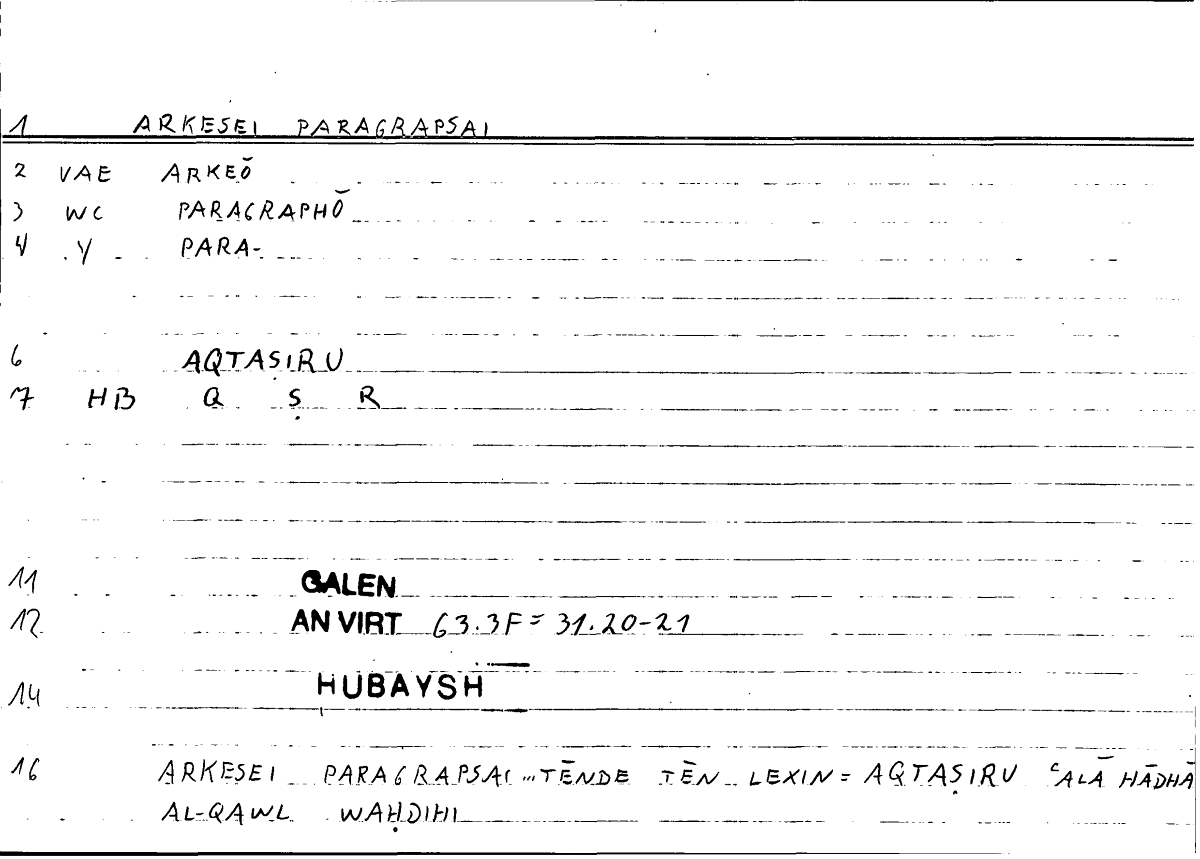 1 ARKESEI PARAGRAPSAI
2 VAE ARKEŌ
3 WC PARAGRAPHŌ
4 Y PARA-
6 AQTAṢIRU
7 HB Q Ṣ R
11 GALEN
12 AN VIRT 63.3F = 31.20-21
14 HUBAYSH
16 ARKESEI PARAGRAPSAI ... TĒNDE TĒN LEXIN = AQTAṢIRU ʿALĀ HĀDHĀ
AL-QAWL WAḤDIHI